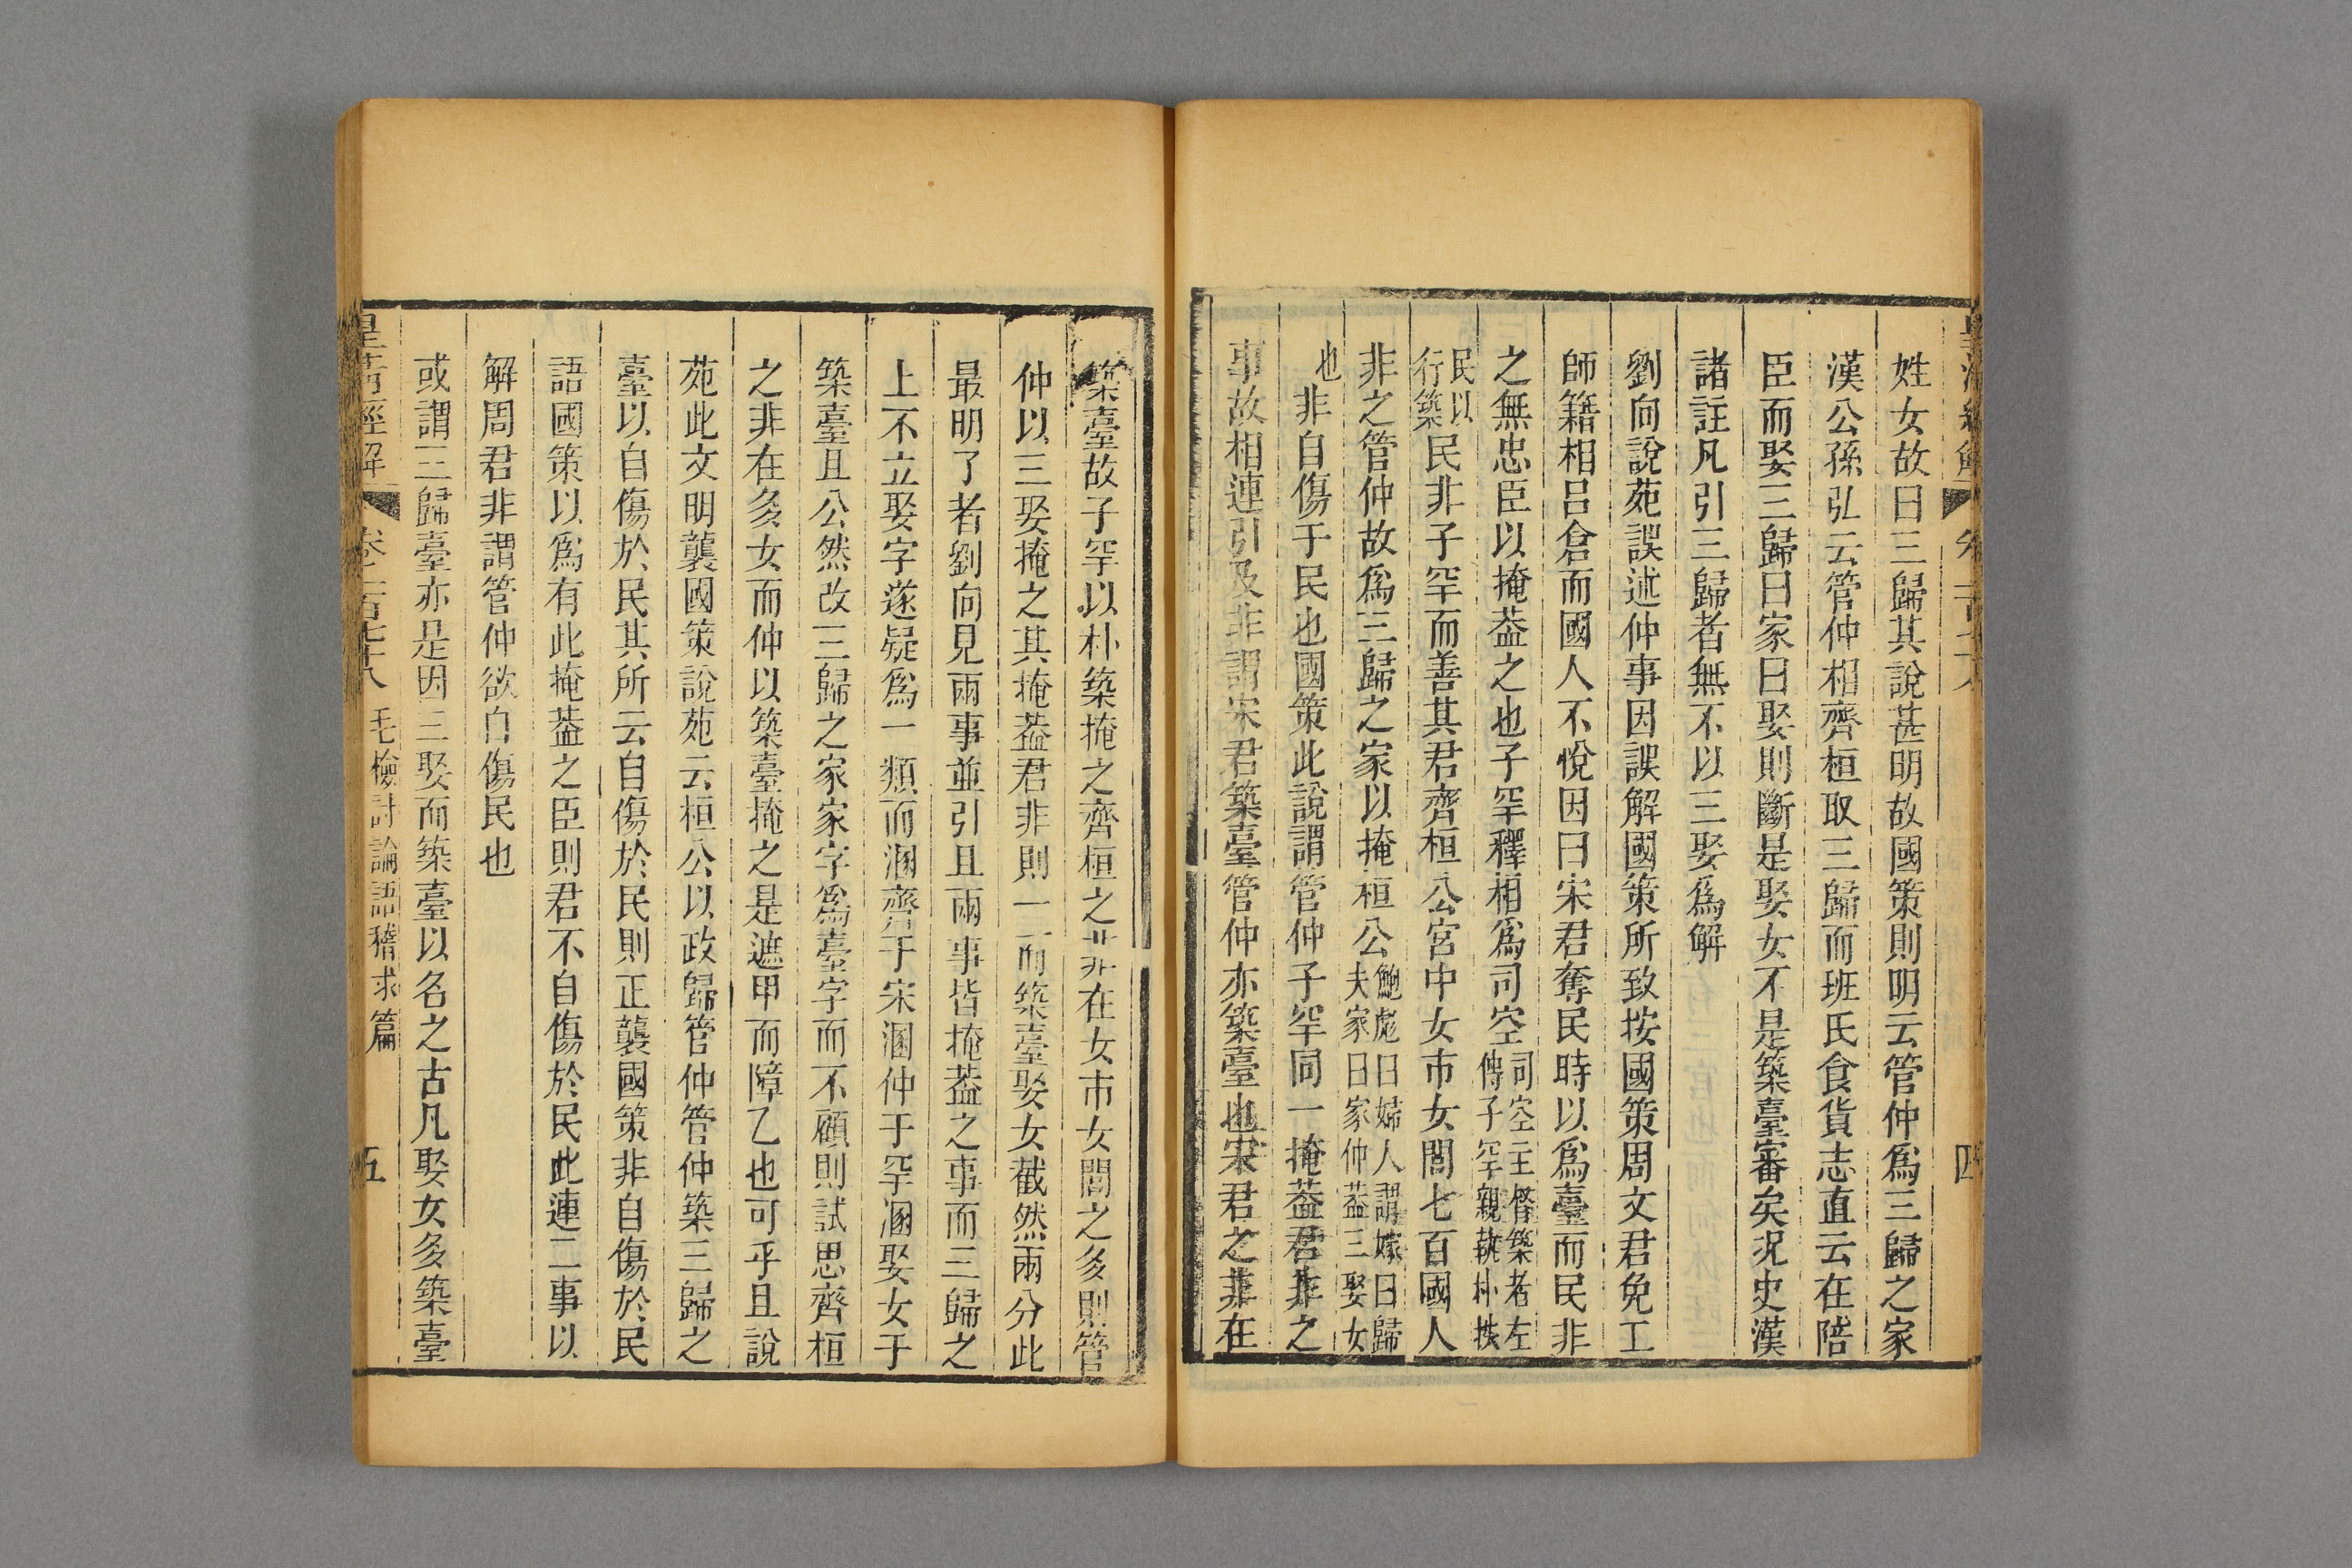 姓女故曰三歸其說甚明故國策則明云管仲爲三歸之家
漢公孫弘云管仲相齊桓取三歸而班氏食貨志直云在陪
臣而娶三歸曰家曰娶則斷是娶女不是築臺審矣况史漢
諸註凡引三歸者無不以三娶爲解
劉向說苑誤述仲事因誤解國策所致按國策周文君免工
師籍相呂倉而國人不悅因曰宋君奪民時以爲臺而民非
之無忠臣以掩葢之也子罕釋相爲司空司空主督築者左傳子罕親執朴抶
民以行築民非子罕而善其君齊桓公宮中女市女閭七百國人
非之管仲故爲三歸之家以掩桓公鮑彪曰婦人謂嫁曰歸夫家曰家仲葢三娶女
也非自傷于民也國策此說謂管仲子罕同一掩葢君非之
事故相連引及非謂宋君築臺管仲亦築臺也宋君之非在
築臺故子罕以朴築掩之齊桓之非在女市女閭之多則管
仲以三娶掩之其掩葢君非則一而築臺娶女截然兩分此
最明了者劉向見兩事並引且兩事皆掩葢之事而三歸之
上不立娶字遂疑爲一類而溷齊于宋溷仲于罕溷娶女于
築臺且公然改三歸之家家字爲臺字而不顧則試思齊桓
之非在多女而仲以築臺掩之是遮甲而障乙也可乎且說
苑此文明襲國策說苑云桓公以政歸管仲管仲築三歸之
臺以自傷於民其所云自傷於民則正襲國策非自傷於民
語國策以爲有此掩葢之臣則君不自傷於民此連二事以
解周君非謂管仲欲自傷民也
或謂三歸臺亦是因三娶而築臺以名之古凡娶女多築臺
皇清經解 卷一百七十八 毛檢討論語稽求篇 五